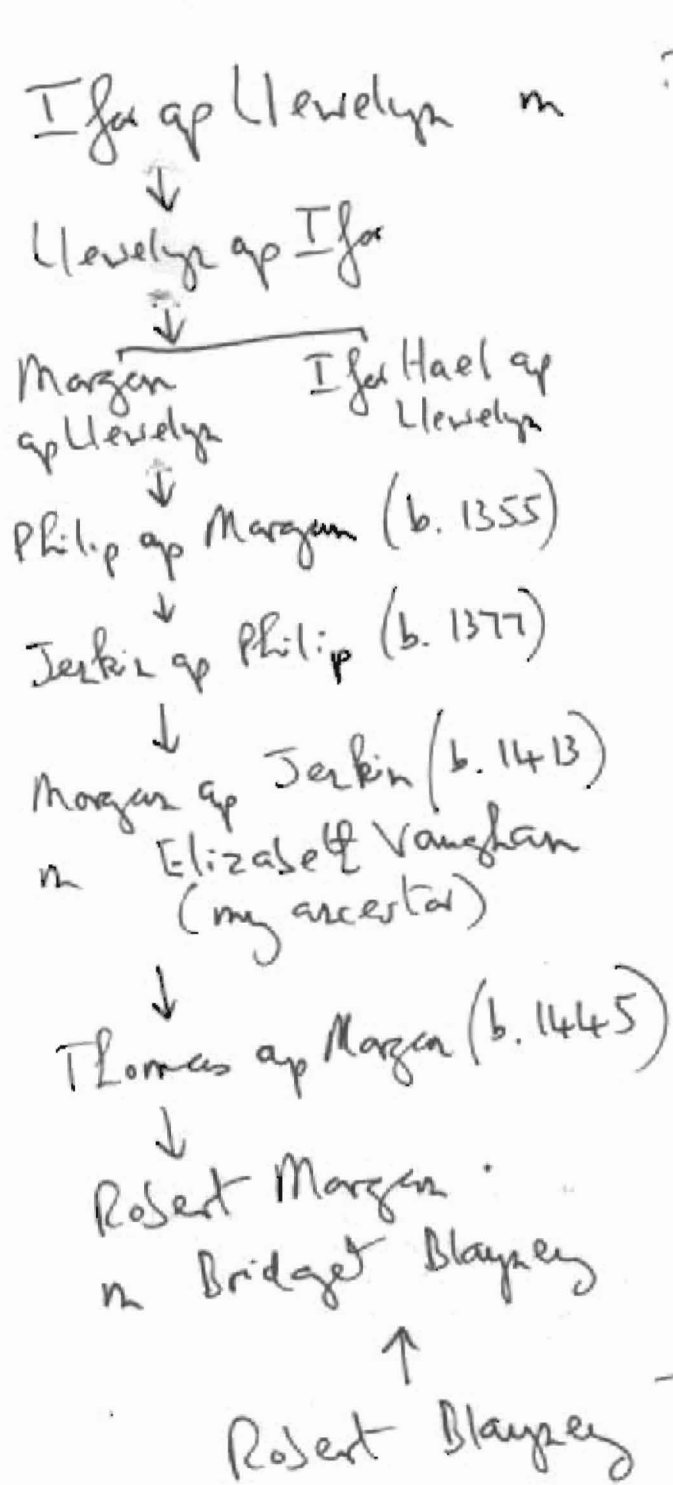 Ifor ap Llewelyn m
Llewelyn ap Ifor
Morgan Ifor Hael ap
ap Llewelyn Llewelyn
Philip ap Morgan (b. 1355)
Jenkin ap Philip (b. 1377)
Morgan ap Jenkin (b. 1413)
m Elizabeth Vaughan
(my ancestor)
Thomas ap Morgan (b. 1445)
Robert Morgan
m Bridget Blayney
Robert Blayney